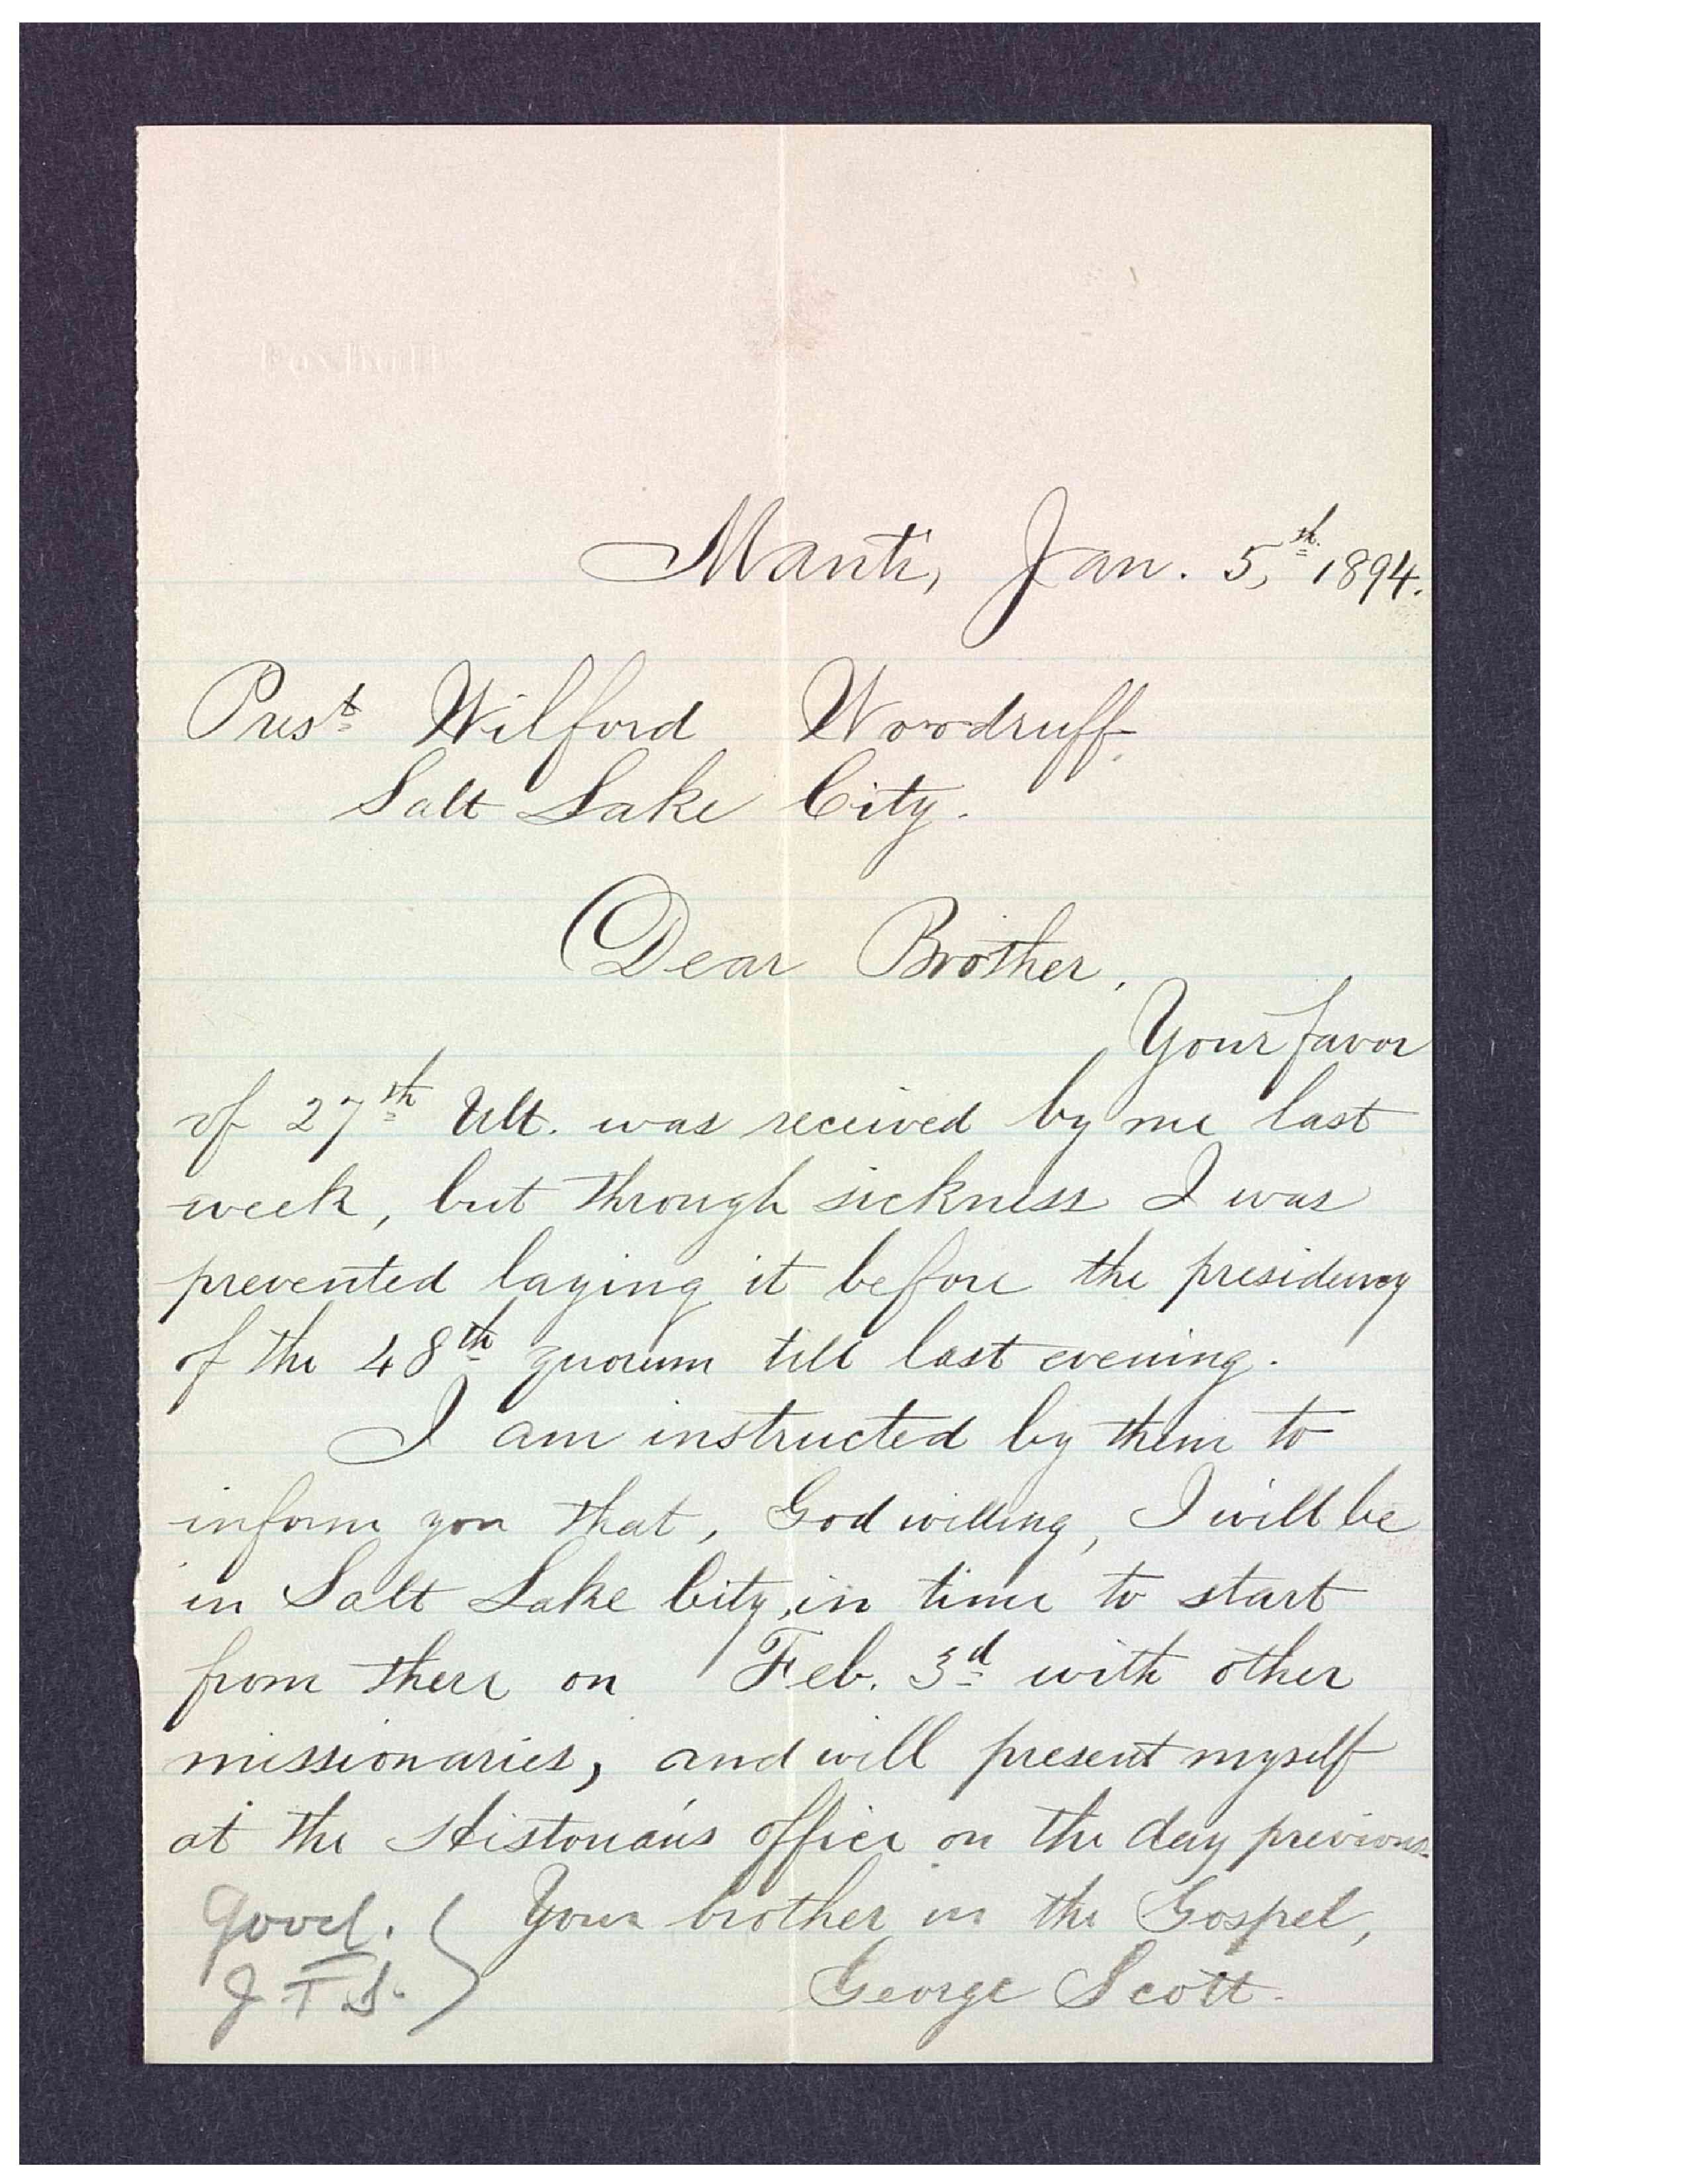 Manti, Jan. 5,th 1894.
Prest Wilford Woodruff,
Salt Lake City.
Dear Brother,
Your favor
of 27th Ult. was received by me last
week, but through sickness I was
prevented laying it before the presidency
of the 48th quorum till last evening.
I am instructed by them to
inform you that, God willing, I will be
in Salt Lake City, in time to start
from there on Feb. 3d with other
missionaries, and will present myself
at the Historian's office on the day previous.
Good. Your brother in the Gospel,
J F S. George Scott.